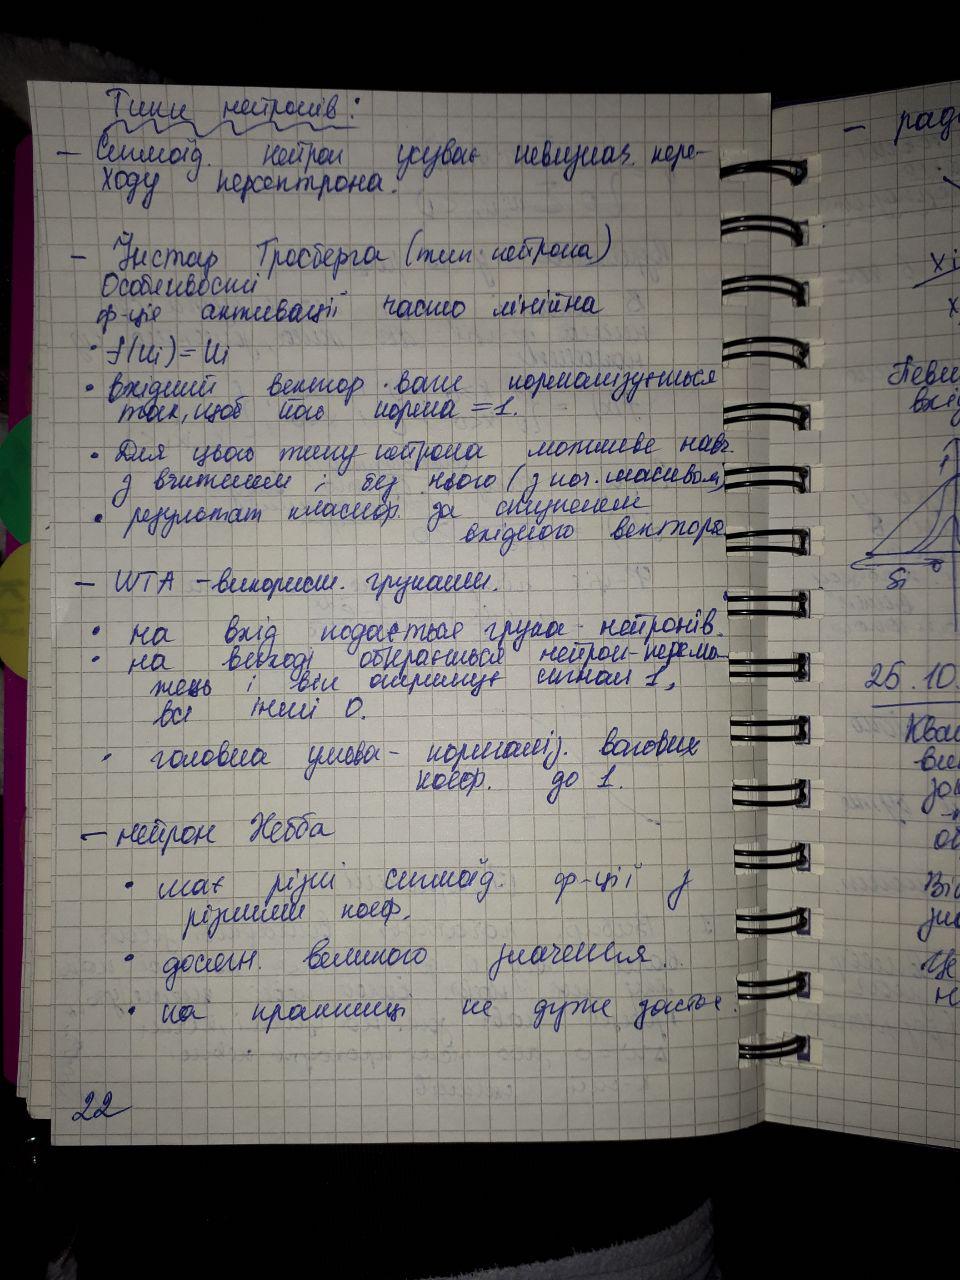 Типи нейронів:
– Сигмоїд. нейрон усуває невизнач. пере-
ходу персептрона.
– Інстар Гросберга (тип нейрона)
Особливості
ф-ція активації часто лінійна
· f(Ui)=Ui
· вхідний вектор ваги нормалізується
так, щоб його норма = 1.
· Для цього типу нейрона можливе навч.
з вчителем і без нього (з поч. масивом)
· результат класиф. за
вхідного вектора
– WTA – використ. групами.
· на вхід подається група нейронів.
· на виході обирається нейрон-перемо-
жець і він отримує сигнал 1,
всі інші 0.
· головна умова – нормаліз. вагових
коеф. до 1.
– нейрон Хебба
· має різні сигмоїд. ф-ції з
різними коеф.
· досягн. великого значення.
· на практиці не дуже застос.
22
– рад
xi
x
Певи
вхід
Si
25.10.
Ква
Від
зна
Це
н